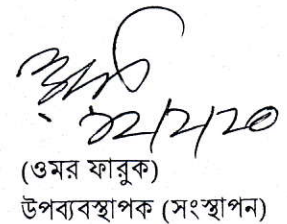 ১২/২/২০
(ওমর ফারুক)
উপব্যবস্থাপক (সংস্থাপন)